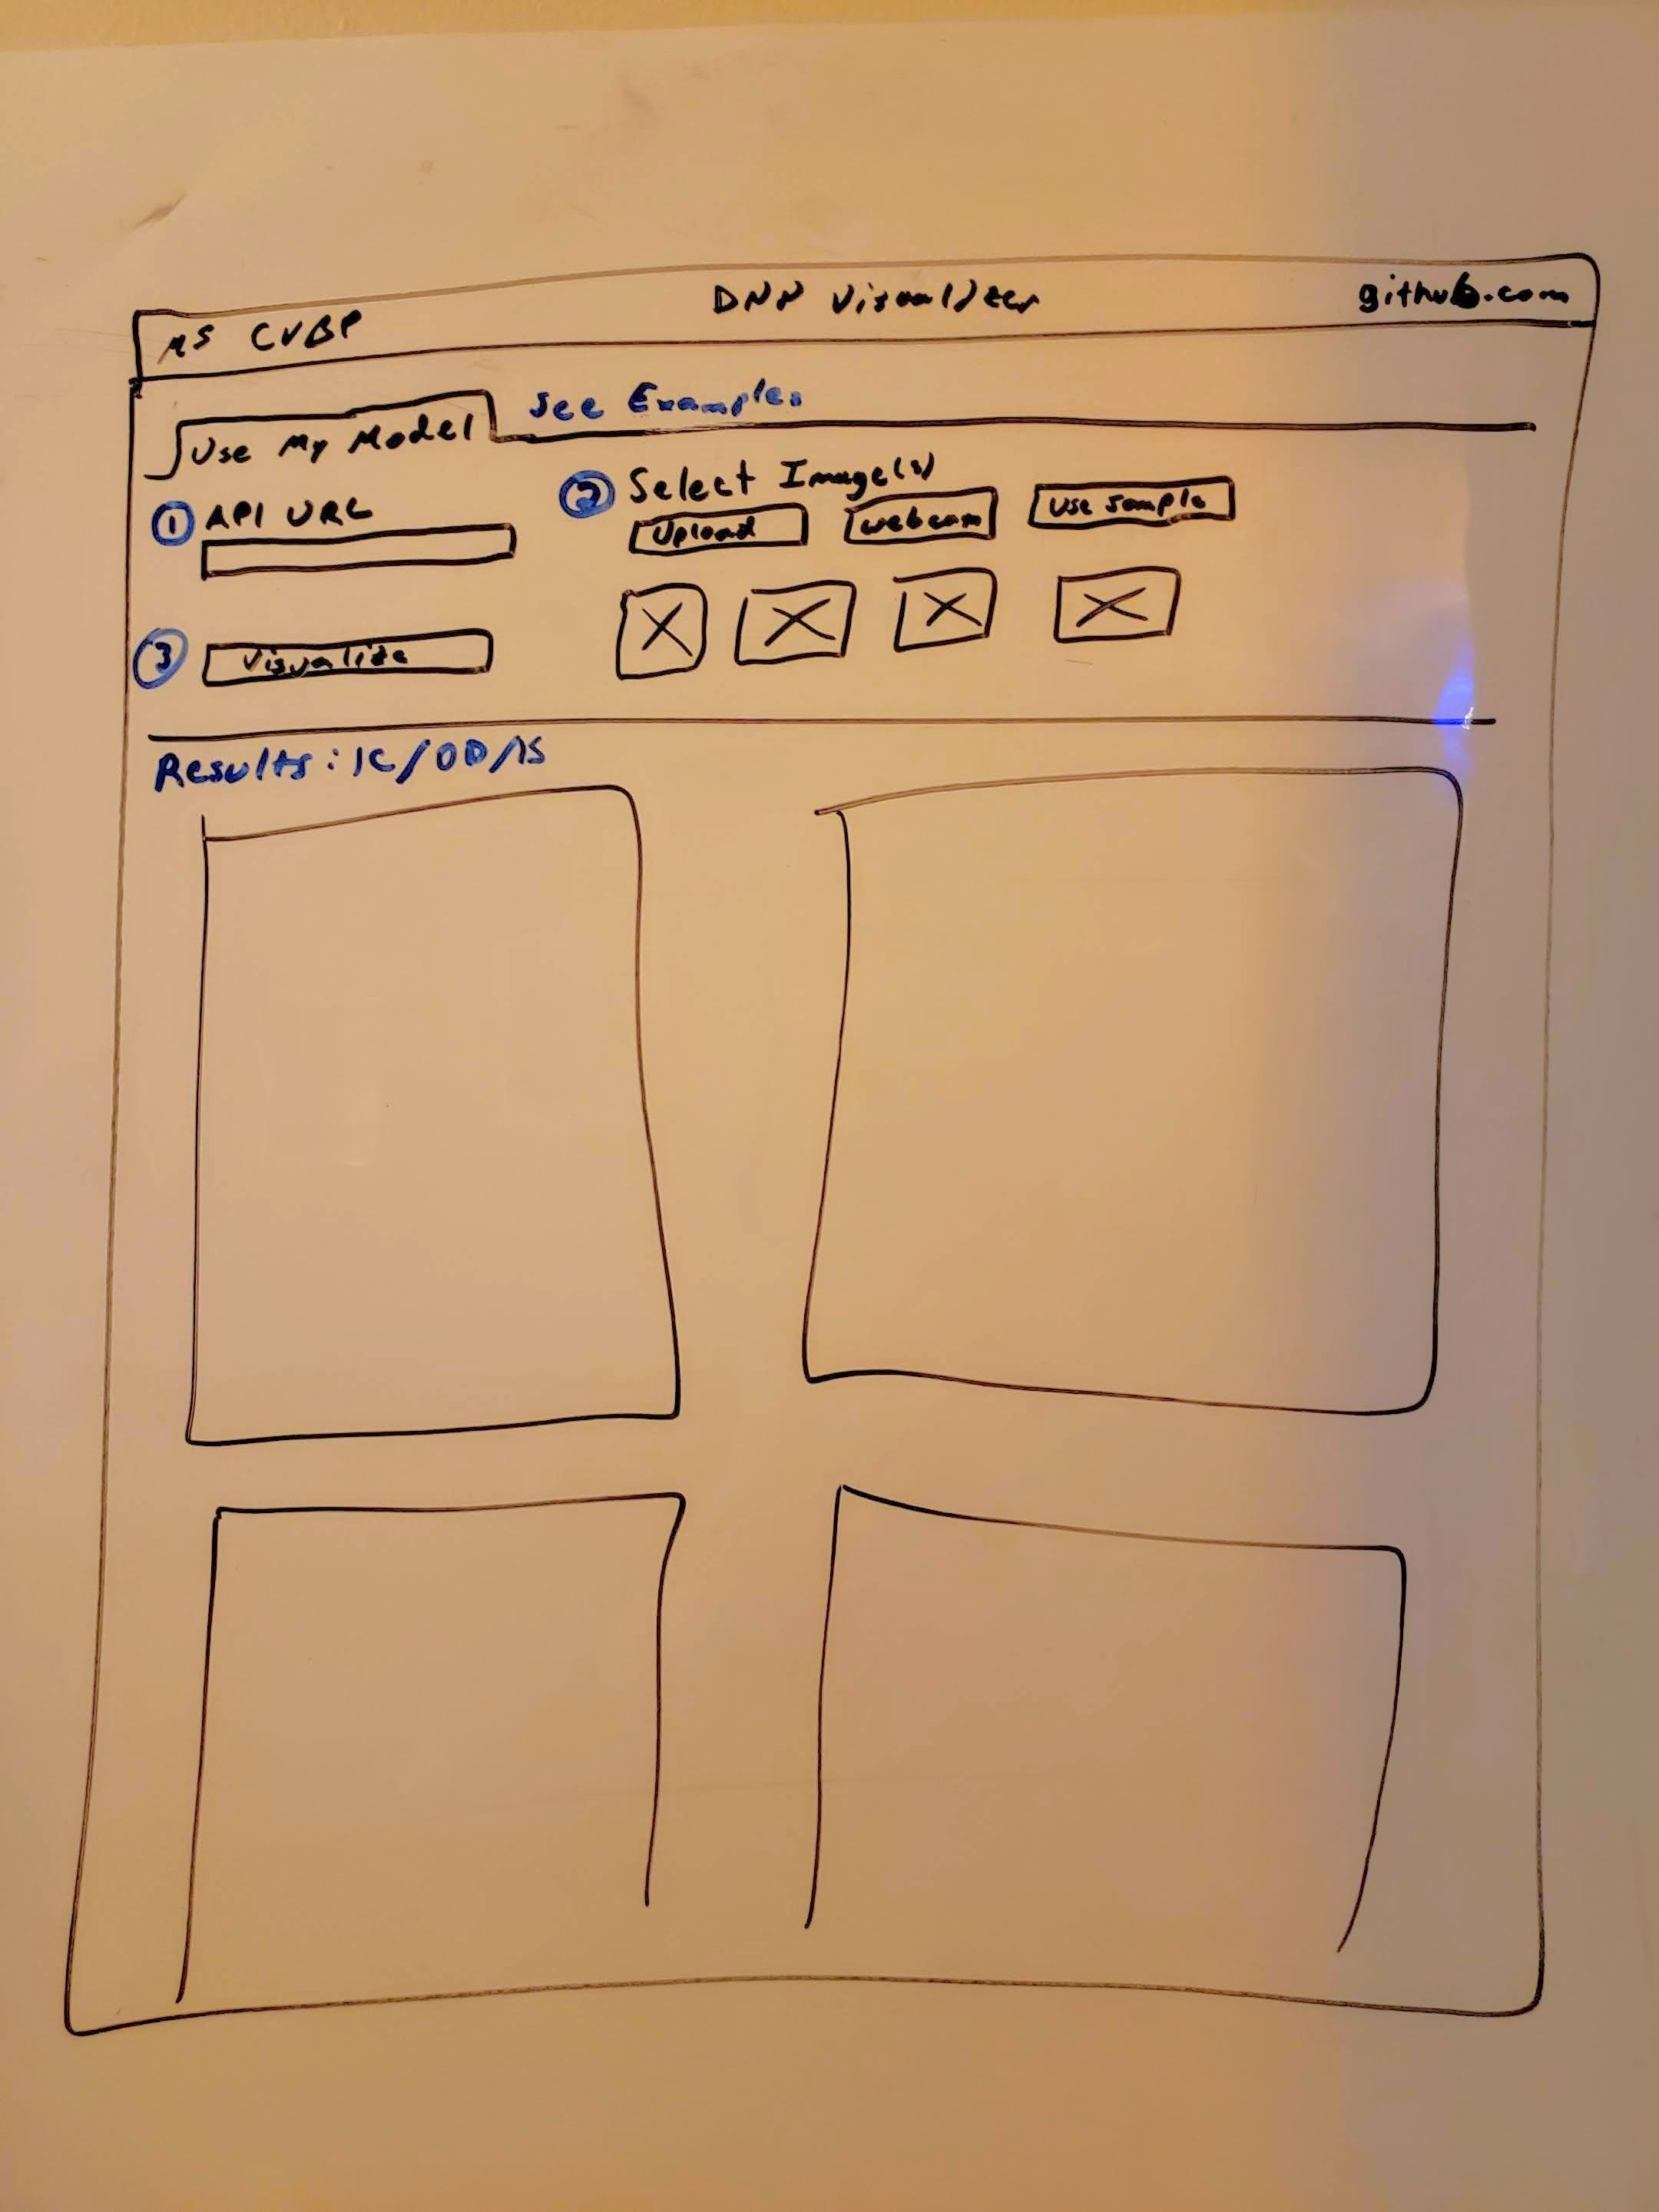 MS CVBP
DNN Visualizer
github.com
Use My Model
See Examples
1 API URL
2 Select Image(s)
Upload
Webcam
Use Sample
3 Visualize
Results: IC/OD/IS